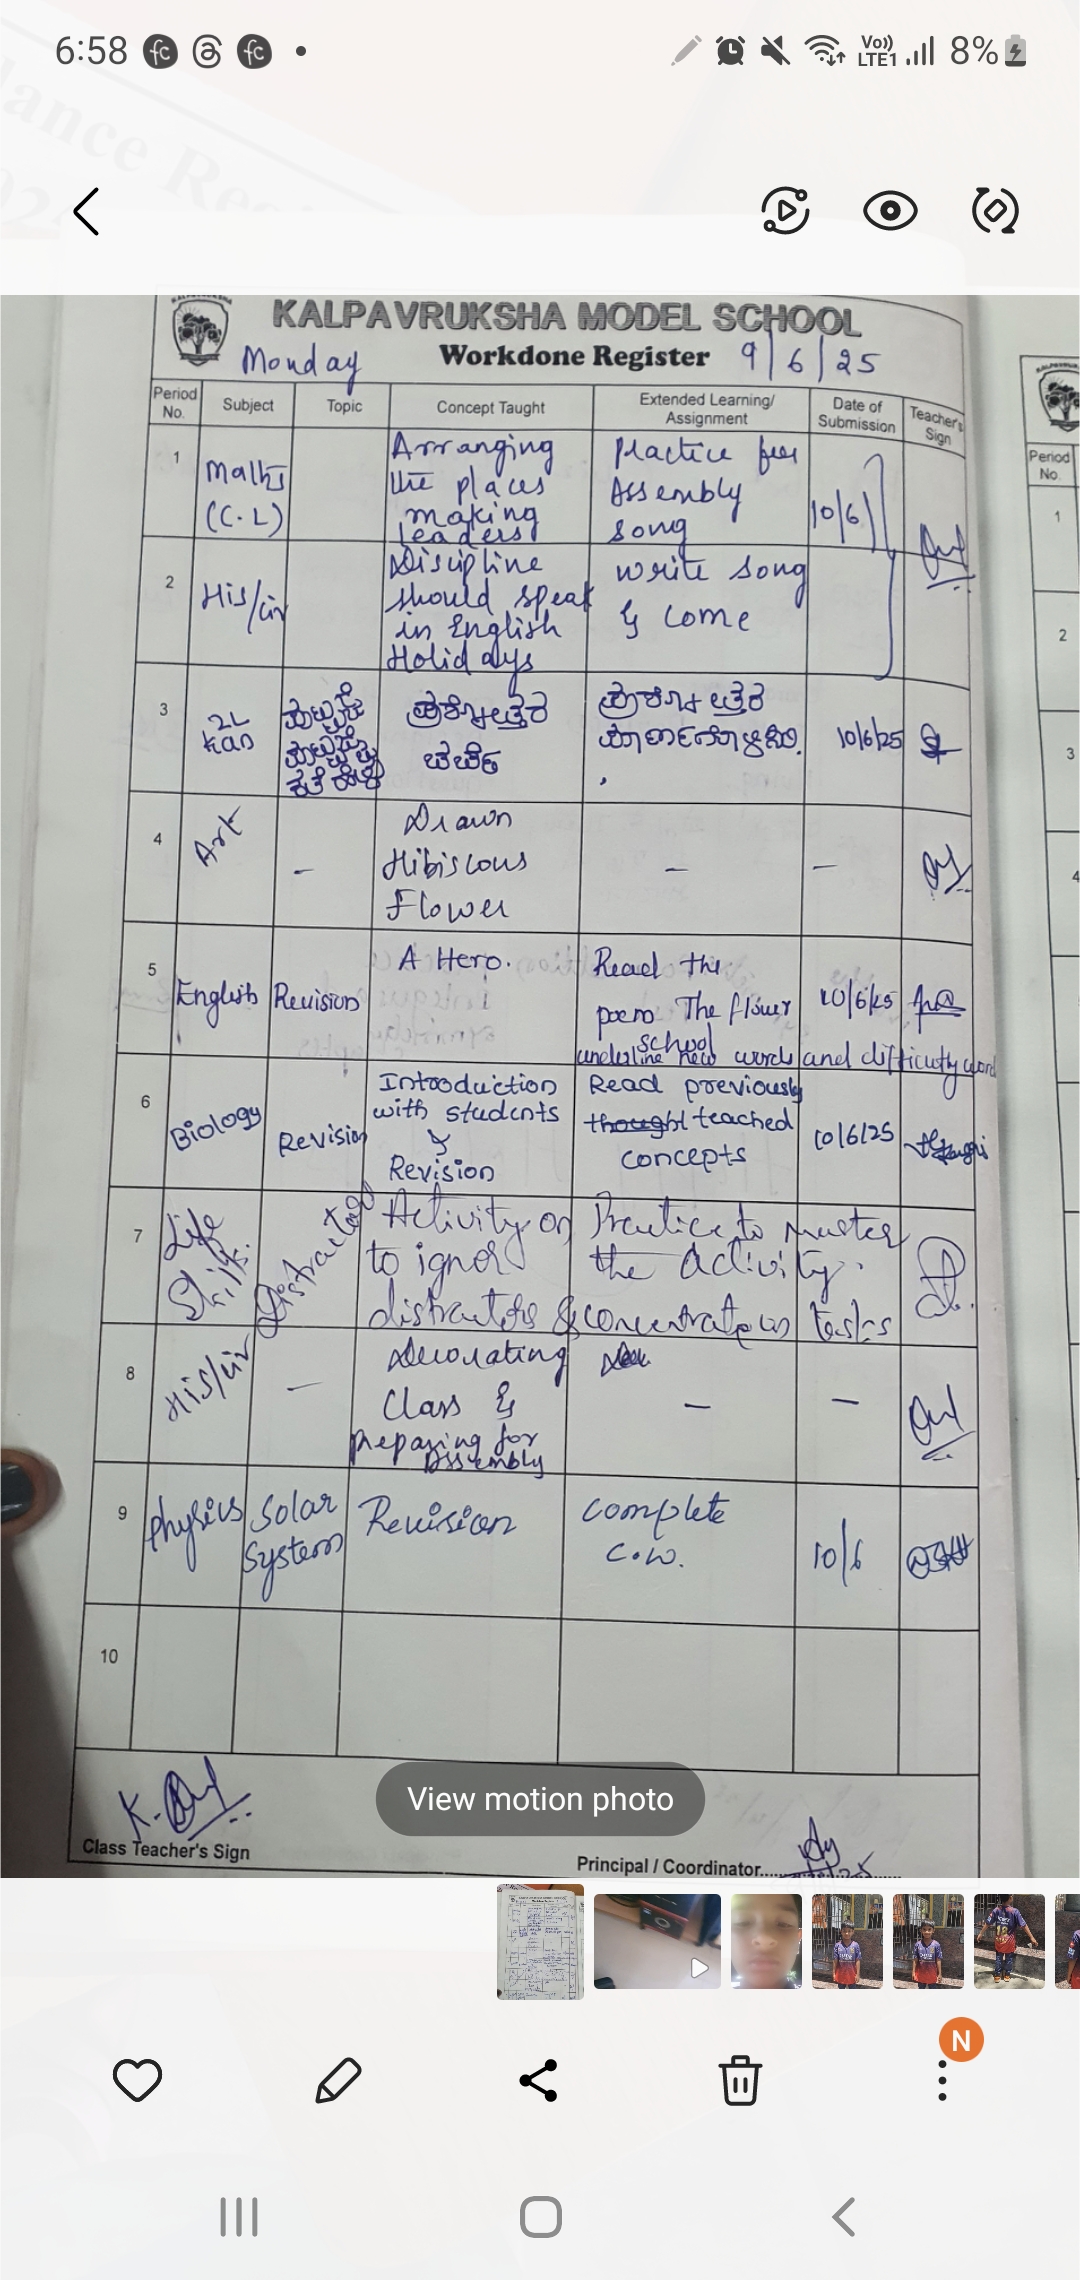 6:58
Vo)) LTE1
8%
KALPAVRUKSHA MODEL SCHOOL
Monday
Workdone Register 9/6/25
Period No.
Subject
Topic
Concept Taught
Extended Learning/ Assignment
Date of Submission
Teacher's Sign
1
Maths
(C.L)
Arranging
the places
making
leaders
practice for
Assembly
song
10/6
2
His/civ
Discipline
should speak
in English
Holidays
write song
& come
3
2L
Kan
ಪ್ರಶ್ನೋತ್ತರ
ಚರ್ಚೆ
ಪ್ರಶ್ನೋತ್ತರ
10/6/25
4
Art
-
Drawn
Hibiscous
Flower
-
-
5
English
Revision
A Hero.
Read the
poem The flower
school
underline new words and difficulty word
10/6/25
6
Biology
Revision
Introduction
with students
&
Revision
Read previously
thought teached
concepts
10/6/25
7
Life
Skills.
Activity on
to ignor
distractors & concentrate on tasks
Practice to master
the activity.
8
His/civ
-
Decorating
Class &
preparing for
Assembly
-
-
9
physics
Solar
System
Revision
complete
C.W.
10/6
10
Class Teacher's Sign
Principal / Coordinator
View motion photo
Period No.
1
2
3
4
18
N